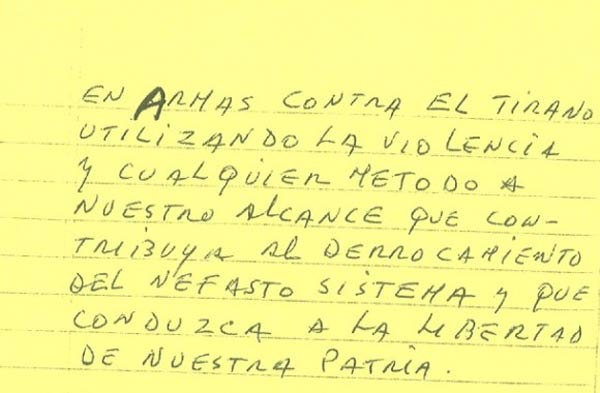 EN ARMAS CONTRA EL TIRANO
UTILIZANDO LA VIOLENCIA
Y CUALQUIER METODO A
NUESTRO ALCANCE QUE CON-
TRIBUYA AL DERROCAMIENTO
DEL NEFASTO SISTEMA Y QUE
CONDUZCA A LA LIBERTAD
DE NUESTRA PATRIA.